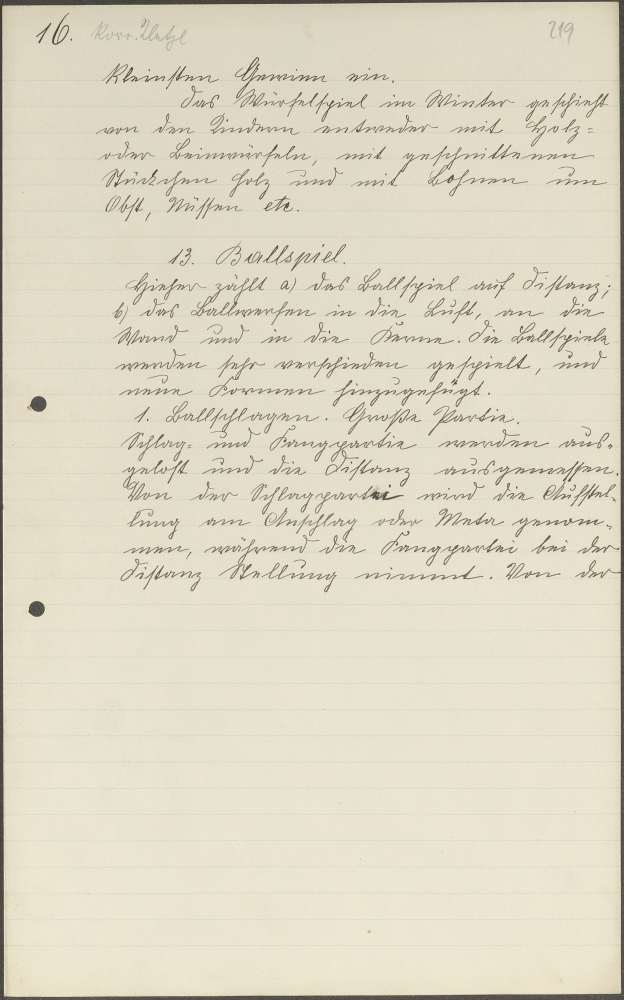 16. Korr. 219
kleinsten Gewinn ein.
Das Würfelspiel im Winter geschieht
von den Kindern entweder mit Holz=
oder Beinwürfeln, mit geschnittenen
Stückchen Holz und mit Bohnen um
Obst, Nüssen etc.
13. Ballspiel.
Hieher zählt a) das Ballspiel auf Distanz;
b) das Ballwerfen in die Luft, an die
Wand und in die Ferne. Die Ballspiele
werden sehr verschieden gespielt, und
neue Formen hinzugefügt.
1. Ballschlagen. Große Partie.
Schlag= und Fangpartie werden aus=
gelost und die Distanz ausgemessen.
Von der Schlagpartei wird die Aufstel=
lung am Anschlag oder Meta genom=
men, während die Fangpartei bei der
Distanz Stellung nimmt. Von der